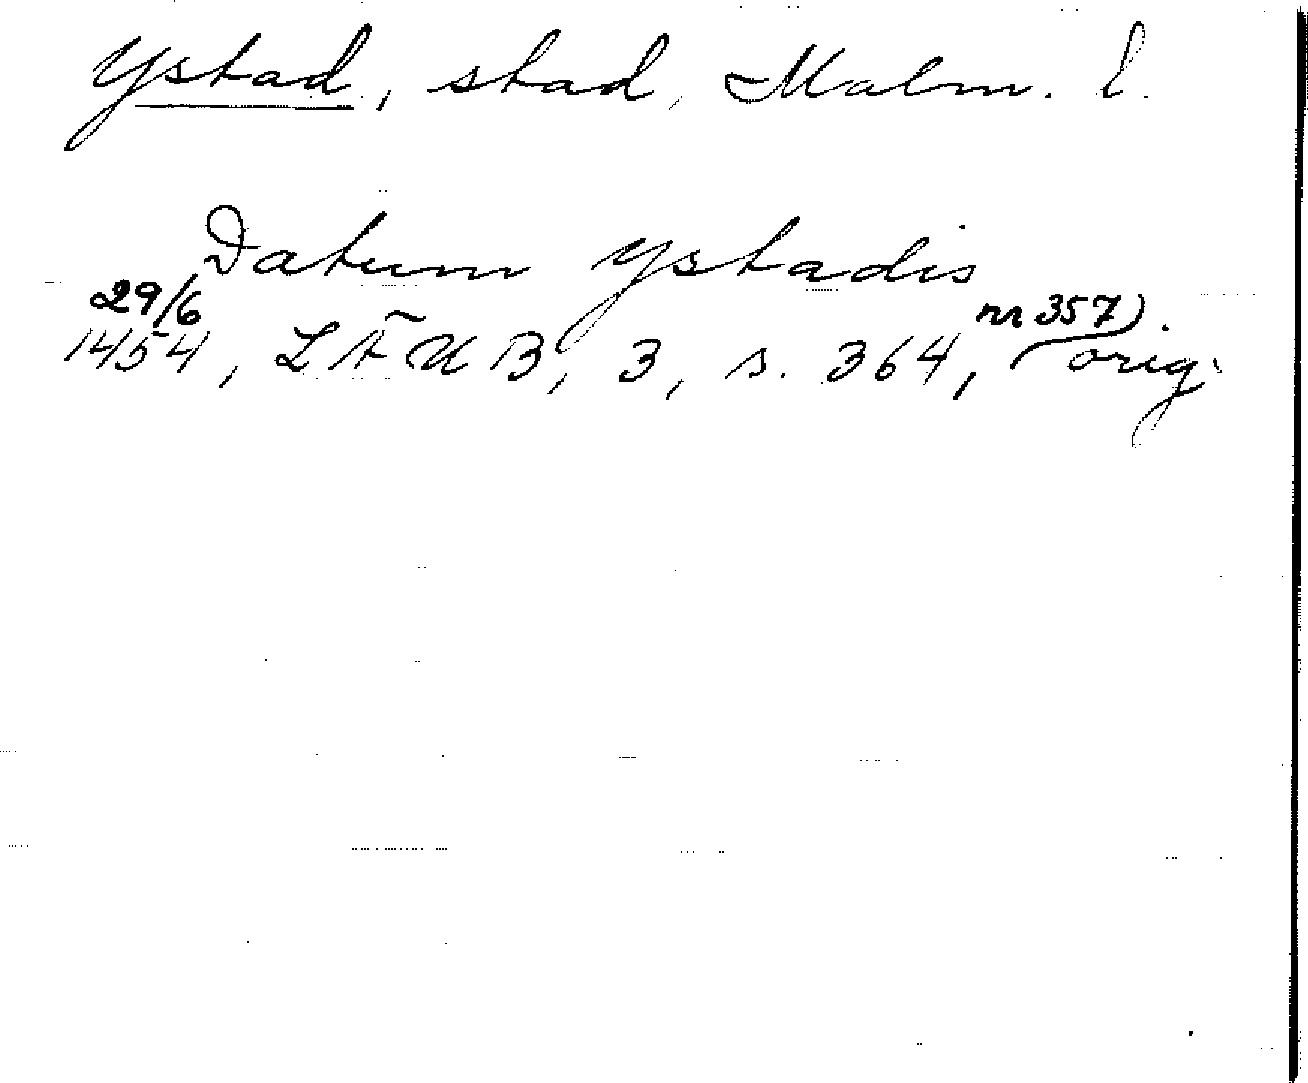 Ystad, stad, Malm. l.
Datum Ystadis
29/6 nr 357).
1454, LÄUB, 3, s. 364, orig.